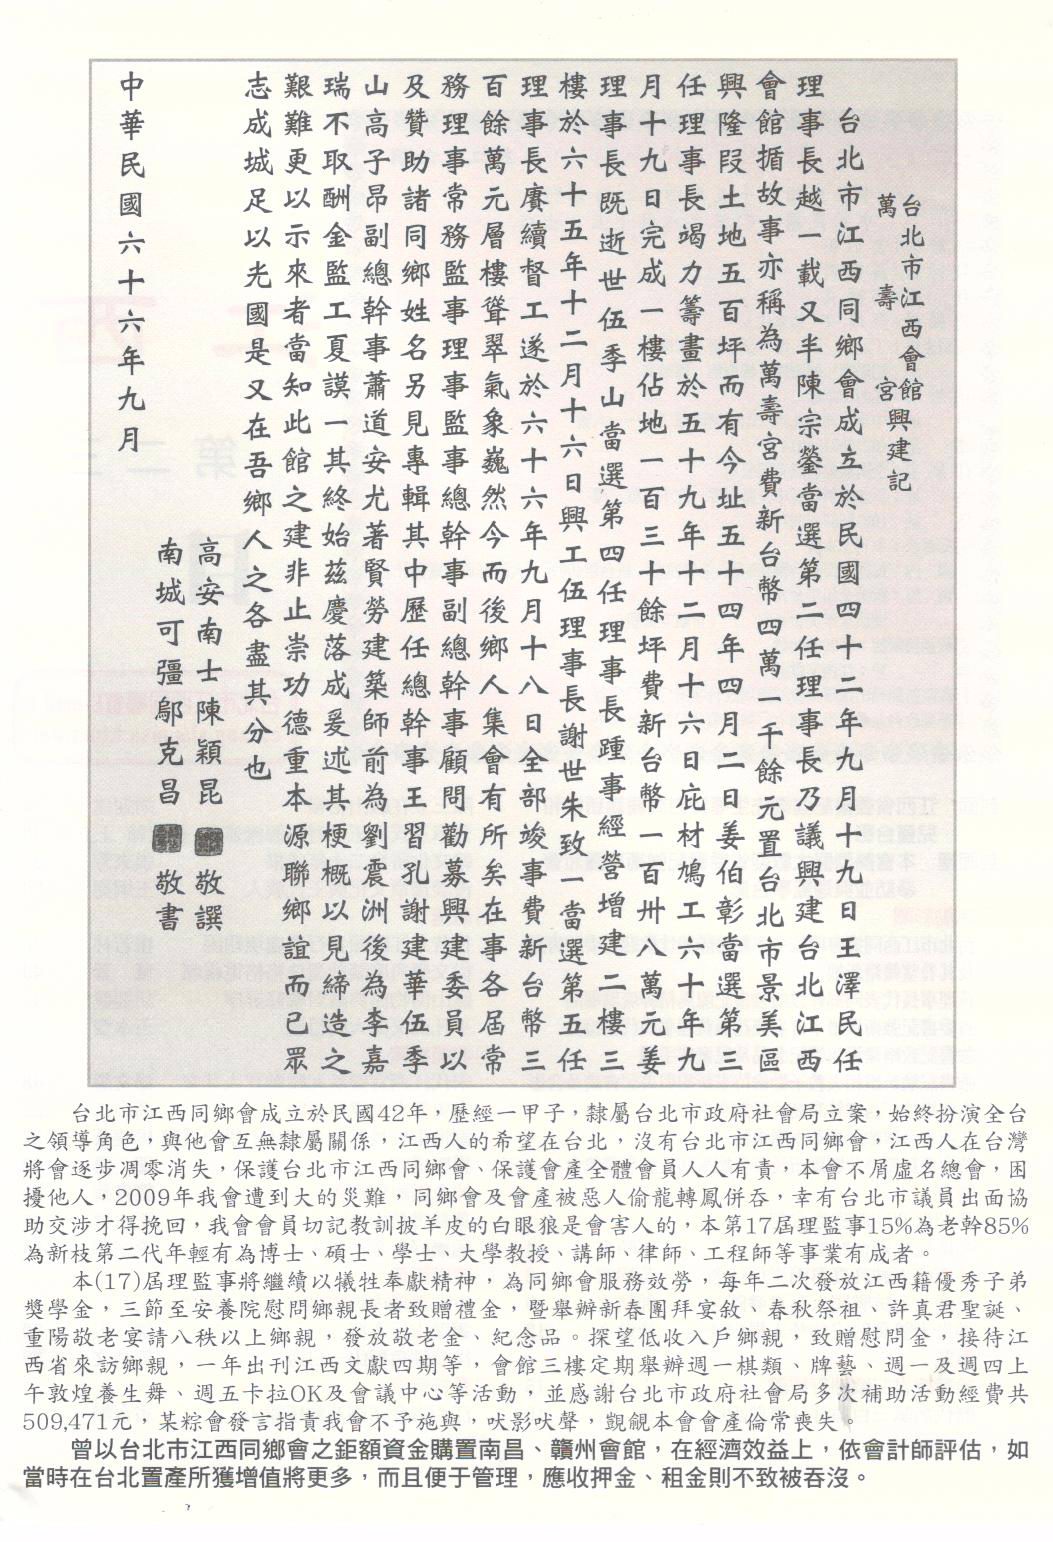 台北市江西會館興建記
萬壽宮
台北市江西同鄉會成立於民國四十二年九月十九日王澤民任
理事長越一載又半陳宗鎣當選第二任理事長乃議興建台北江西
會館揗故事亦稱為萬壽宮費新台幣四萬一千餘元置台北市景美區
興隆段土地五百坪而有今址五十四年四月二日姜伯彰當選第三
任理事長竭力籌畫於五十九年十二月十六日庇材鳩工六十年九
月十九日完成一樓佔地一百三十餘坪費新台幣一百卅八萬元姜
理事長既逝世伍季山當選第四任理事長踵事經營增建二樓三
樓於六十五年十二月十六日興工伍理事長謝世朱致一當選第五任
理事長賡續督工遂於六十六年九月十八日全部竣事費新台幣三
百餘萬元層樓聳翠氣象巍然今而後鄉人集會有所矣在事各屆常
務理事常務監事理事監事總幹事副總幹事顧問勸募興建委員以
及贊助諸同鄉姓名另見專輯其中歷任總幹事王習孔謝建華伍季
山高子昂副總幹事蕭道安尤著賢勞建築師前為劉震洲後為李嘉
瑞不取酬金監工夏謨一其終始茲慶落成爰述其梗概以見締造之
艱難更以示來者當知此館之建非止崇功德重本源聯鄉誼而已眾
志成城足以光國是又在吾鄉人之各盡其分也
高安南士陳穎昆敬譔
南城可彊鄔克昌敬書
中華民國六十六年九月
台北市江西同鄉會成立於民國42年，歷經一甲子，隸屬台北市政府社會局立案，始終扮演全台
之領導角色，與他會互無隸屬關係，江西人的希望在台北，沒有台北市江西同鄉會，江西人在台灣
將會逐步凋零消失，保護台北市江西同鄉會、保護會產全體會員人人有責，本會不屑虛名總會，困
擾他人，2009年我會遭到大的災難，同鄉會及會產被惡人偷龍轉鳳併吞，幸有台北市議員出面協
助交涉才得挽回，我會會員切記教訓披羊皮的白眼狼是會害人的，本第17屆理監事15%為老幹85%
為新枝第二代年輕有為博士、碩士、學士、大學教授、講師、律師、工程師等事業有成者。
本(17)屆理監事將繼續以犧牲奉獻精神，為同鄉會服務效勞，每年二次發放江西籍優秀子弟
獎學金，三節至安養院慰問鄉親長者致贈禮金，暨舉辦新春團拜宴敘、春秋祭祖、許真君聖誕、
重陽敬老宴請八秩以上鄉親，發放敬老金、紀念品。探望低收入戶鄉親，致贈慰問金，接待江
西省來訪鄉親，一年出刊江西文獻四期等，會館三樓定期舉辦週一棋類、牌藝、週一及週四上
午敦煌養生舞、週五卡拉OK及會議中心等活動，並感謝台北市政府社會局多次補助活動經費共
509,471元，某粽會發言指責我會不予施與，吠影吠聲，覬覦本會會產倫常喪失。
曾以台北市江西同鄉會之鉅額資金購置南昌、贛州會館，在經濟效益上，依會計師評估，如
當時在台北置產所獲增值將更多，而且便于管理，應收押金、租金則不致被吞沒。